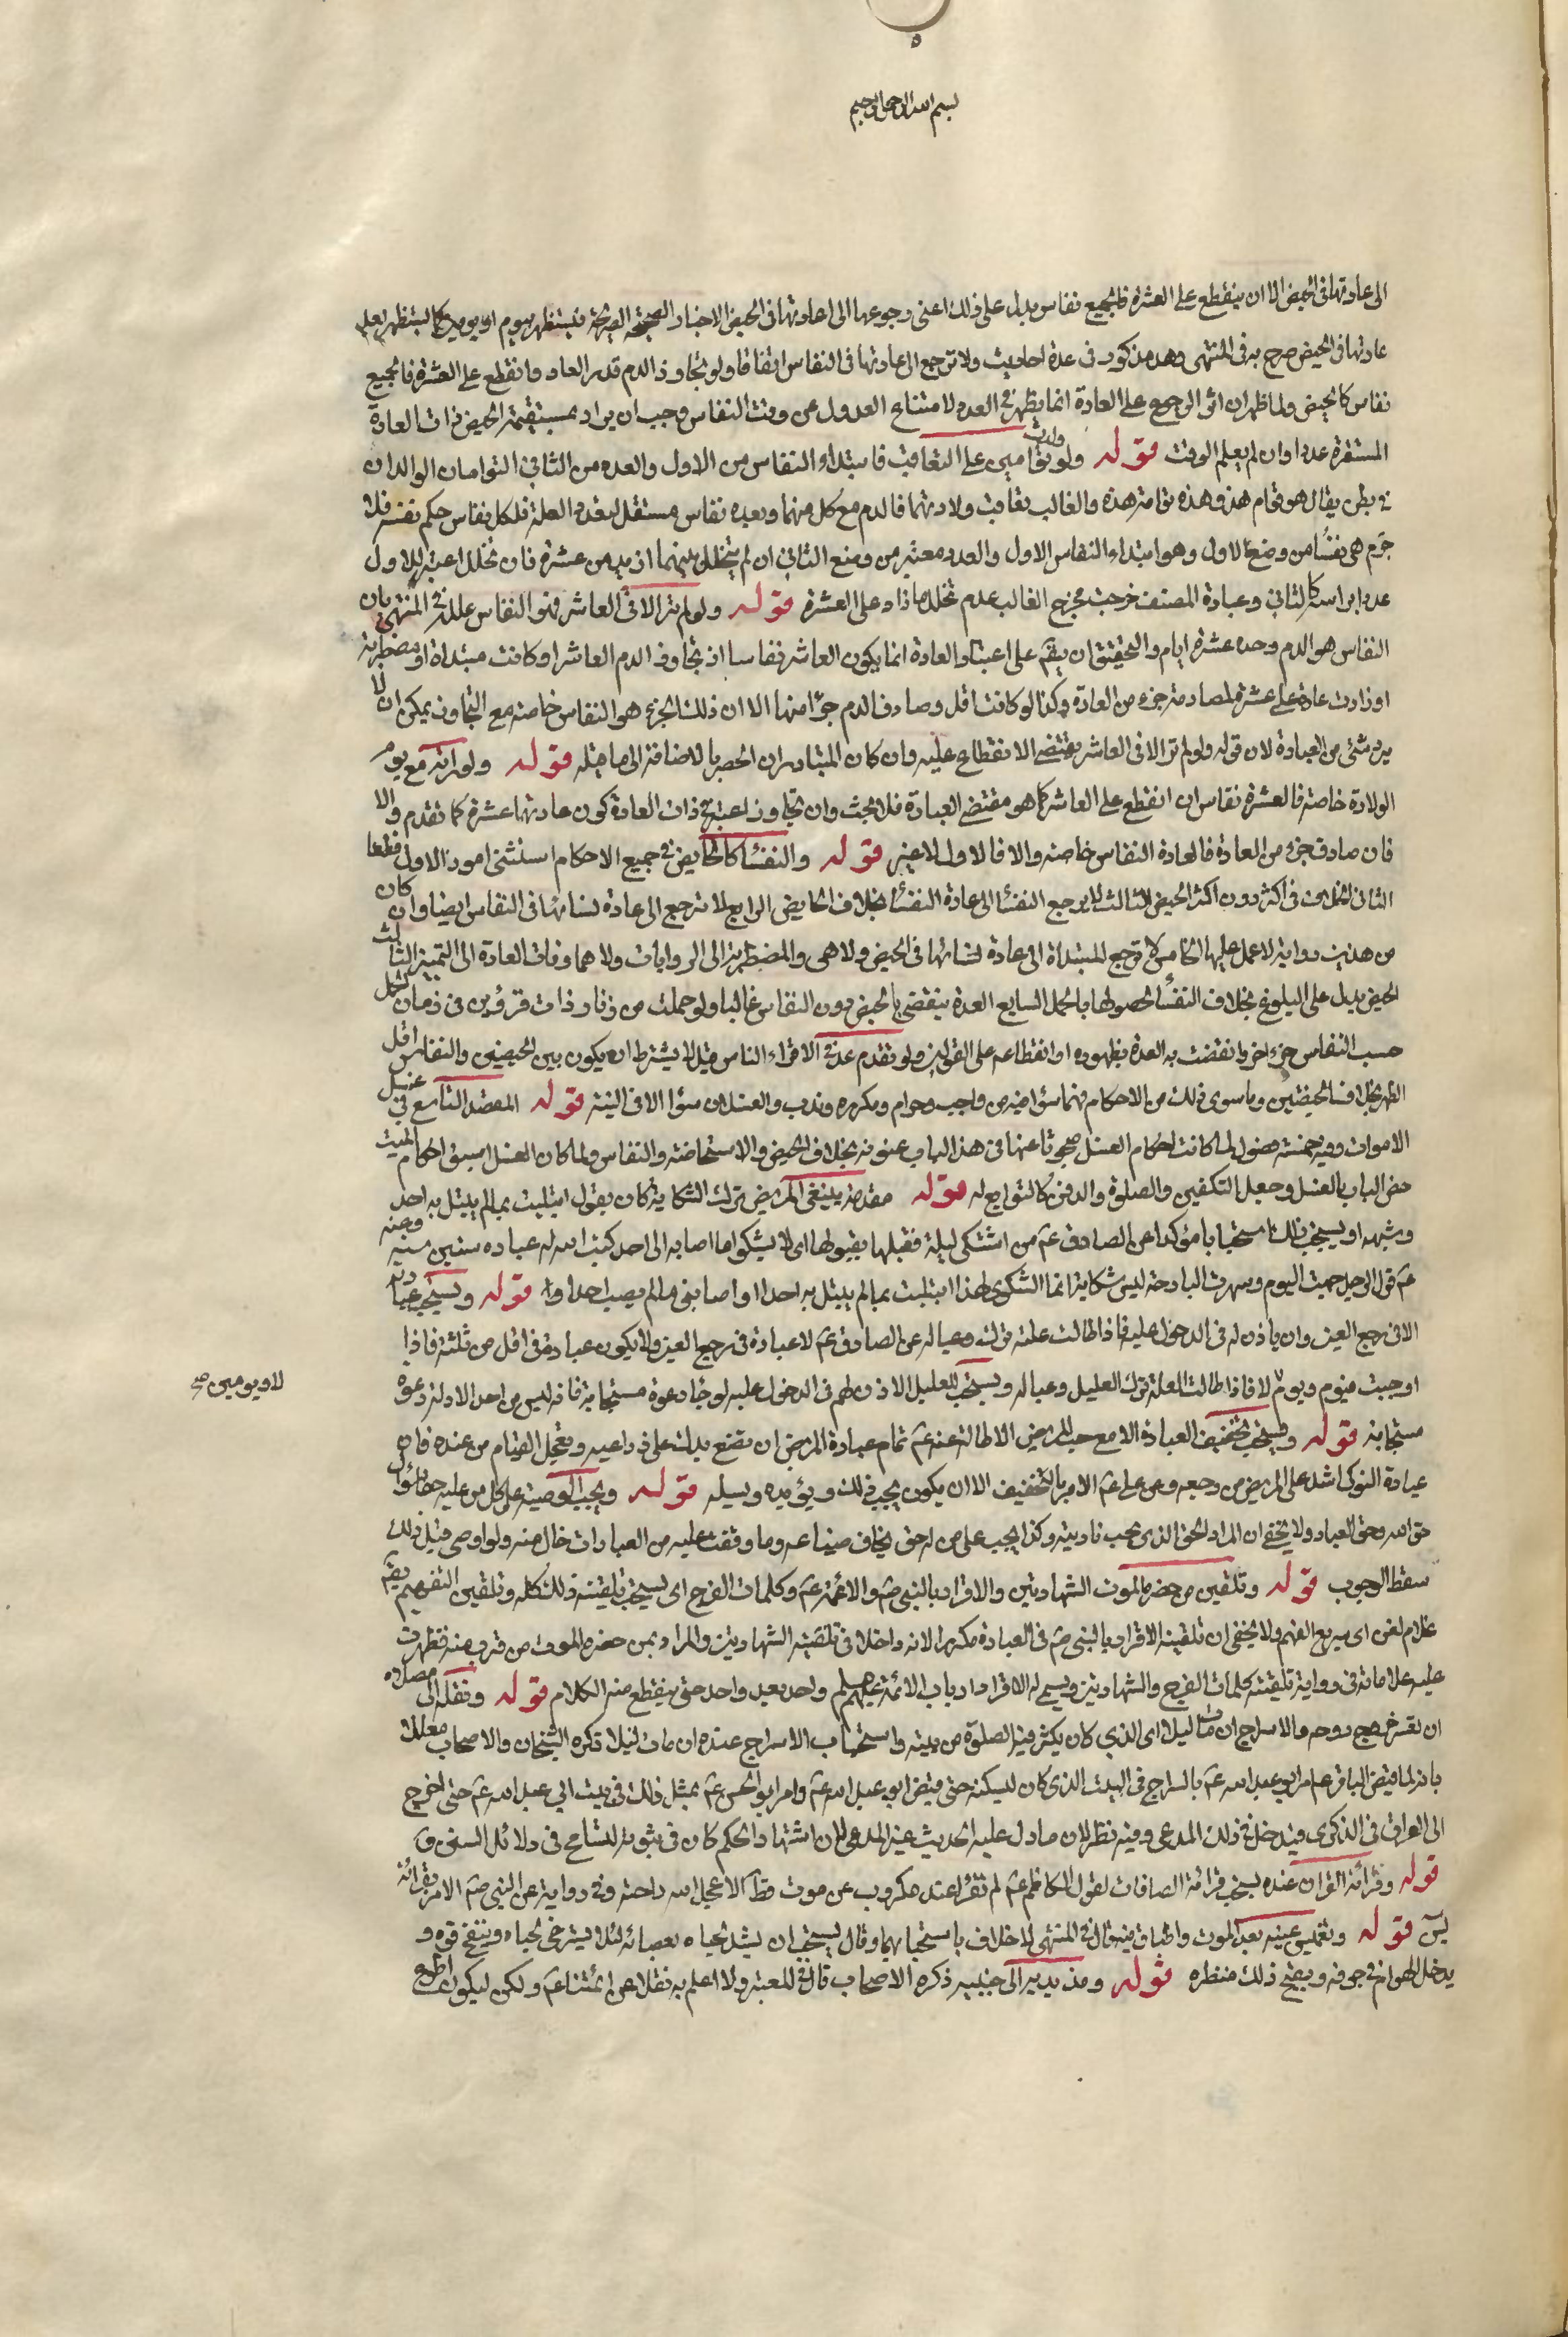 ٥
بسم الله الرحمن الرحيم
الى عادتها فى الحيض الا ان ينقطع على العشرة فالجميع نفاس يدل على ذلك اعنى رجوعها الى عادتها فى الحيض الاخبار الصحيحة الصريحة فتستظهر بيوم او يومين كما تستظهر
عادتها فى الحيض صرح به فى المنتهى وهو مذكور فى عدة احاديث ولا ترجع الى عادتها فى النفاس اتفاقا ولو تجاوز الدم قدر العادة وانقطع على العشرة فالجميع
نفاس كالحيض ولما ظهر ان اثر الرجوع على العادة انما يظهر فى العدد لامتناع العدول عن وقت النفاس وجب ان يراد بمستقيمة الحيض ذات العادة
المستقرة عددا وان لم يعلم الوقت قوله ولو ولدت توامين على التعاقب فابتداء النفاس من الاول والعدد من الثانى التوامان الوالدان
فى بطن يقال هو توام هذا وهذه توامة هذه والغالب تعاقب ولادتهما فالدم مع كل منهما وبعده نفاس مستقل لتعدد العلة فلكل نفاس حكم نفسه فلا
جرم هى نفساء من وضع الاول وهو ابتداء النفاس الاول والعدد معتبر من وضع الثانى ان لم يتخلل بينهما ازيد من عشرة فان تخلل اعتبر للاول
عدد براسه كالثانى وعبارة المصنف خرجت مخرج الغالب عدم تخلل ما زاد على العشرة قوله ولو لم تر الا فى العاشر فهو النفاس علله فى المنتهى بان
النفاس هو الدم وحده عشرة ايام والتحقيق ان يقال على اعتبار العادة انما يكون العاشر نفاسا اذ تجاوز الدم العاشر او كانت مبتداة او مضطربة
او زادت عادة على عشرة لمصادمة جزء من العادة وكذا لو كانت اقل وصادف الدم جزءا منها الا ان ذلك الجزء هو النفاس خاصة مع التجاوز يمكن ان لا
يرد شئ من العبارة لان قوله ولو لم تر الا فى العاشر مقتضى الانقطاع عليه وان كان المتبادر ان الحصر بالاضافة الى ما قبله قوله ولو راته مع يوم
الولادة خاصة فالعشرة نفاس ان انقطع على العاشر كما هو مقتضى العبارة فلا بحث وان تجاوز اعتبر فى ذات العادة كون عادتها عشرة كما تقدم والا
فان صادف جزء من العادة فالعادة النفاس خاصة والا فالاول لا غير قوله والنفساء كالحايض فى جميع الاحكام استثنى امور الاول قطعا
الثانى الخلاف فى اكثره دون اكثر الحيض الثالث لا يرجع النفساء الى عادة النفساء بخلاف الحايض الرابع لا ترجع الى عادة نسائها فى النفاس ايضا وان كان
من هذين رواية لا عمل عليها الخامس لا ترجع المبتداة الى عادة نسائها فى الحيض ولا هى والمضطربة الى الروايات ولا هما وذات العادة الى التمييز الثالث
الحيض يدل على البلوغ بخلاف النفساء لحصولها بالحمل السابع العدة ينقضى بالحيض دون النفاس غالبا ولو حملت من زنا وذات قروئين فى زمان الحمل
حسب النفاس جزء اخر وانقضت به العدة بظهوره او انقطاعه على القولين ولو تقدم عدة الاقراء الناس قيل لا يشترط ان يكون بين الحيضين والنفاس اقل
الطهر بخلاف الحيضتين وما سوى ذلك من الاحكام فهما سواء فيه من واجب وحرام ومكروه وندب والغسلان سواء الا فى النية قوله المقصد التاسع فى غسل
الاموات وفيه خمسة فصول لما كانت احكام الغسل مبحوثا عنها فى هذا الباب عنونه بخلاف الحيض والاستحاضة والنفاس ولما كان الغسل اسبق احكام الميت
خص الباب بالغسل وجعل التكفين والصلوة والدفن كالتوابع له قوله مقدمة ينبغى المريض ترك الشكاية كان يقول ابتليت بما لم يبتل به احد
وشبهه او يستحب ذلك استحبابا مؤكدا عن الصادق عم من اشتكى ليلة فقبلها بقبولها اى لا يشكو ما اصابه الى احد كتب الله له عبادة ستين سنة وعنه
عم قول الرجل حممت اليوم وسهرت البارحة ليس شكاية انما الشكوى لهذا ابتليت بما لم يبتل به احدا واصابنى ما لم يصب احدا قوله ويستحب عيادته
الا فى وجع العين وان ياذن له فى الدخول عليه فاذا طالت علته ترك وعياله عن الصادق عم لا عيادة فى وجع العين ولا يكون عيادة فى اقل من ثلثة فاذا
اوجبت فيوم ويوم لا فاذا طالت العلة ترك العليل وعياله ويستحب للعليل الاذن لهم فى الدخول عليه لرجاء دعوة مستجابة فانه ليس من احد الا وله دعوة
لا ويومين صح
مستجابة قوله ويستحب تخفيف العيادة الا مع حب المريض الاطالة عنه عم تمام عيادة المريض ان تضع يدك على ذراعيه وتعجل القيام من عنده فان
عيادة النوكى اشد على المريض من وجعه وعن على عم الامر بالتخفيف الا ان يكون يحب ذلك ويؤيده ويسئله قوله ويجب الوصية على كل من عليه حق
حق الله وحق العباد ولا يخفى ان المراد الحق الذى يجب تاديته وكذا يجب على من له حق يخاف ضياعه وما وقفت عليه من العبارات خال منه ولو اوصى قبل ذلك
سقط الوجوب قوله وتلقين من حضره الموت الشهادتين والاقرار بالنبى صم والائمة عم وكلمات الفرج اى يستحب تلقينه ذلك كله وتلقين التفهيم يقال
غلام لقن اى سريع الفهم ولا يخفى ان تلقينه الاقرار بالنبى صم فى العبارة مكررا لانه داخل فى تلقينه الشهادتين والمراد بمن حضره الموت من قرب منه فظهرت
عليه علاماته فى رواية تلقينه كلمات الفرج والشهادتين ويسمى له الاقرار بالائمة عليهم السلم واحد بعد واحد حتى ينقطع منه الكلام قوله ونقله الى مصلاه
ان تعسر خروج روحه والاسراج ان مات ليلا اى الذى كان يكثر فيه الصلوة من بيته واستحباب الاسراج عنده ان مات ليلا ذكره الشيخان والاصحاب معللا
بانه لما قبض الباقر عم امر ابو عبد الله عم بالسراج فى البيت الذى كان يسكنه حتى قبض ابو عبد الله عم وامر ابو الحسن عم بمثل ذلك فى بيت ابى عبد الله عم حتى اخرج
الى العراق فى الذكرى فيدخل فى ذلك المدعى وفيه نظر لان ما دل عليه الحديث غير المدعى لان اشتهار الحكم كان فى ثبوته للتسامح فى دلائل السنن
قوله وقرائة القران عنده يستحب قرائة الصافات لقول الكاظم عم لم تقرأ عند مكروب عن موت قط الا عجل الله راحته وفى رواية عن النبى صم الامر بقرائة
يس قوله وتغميض عينيه بعد الموت واطباق فيه قال فى المنتهى لا خلاف باستحبابهما وقال يستحب ان يشد لحياه بعصابة لئلا يسترخى لحياه وينفتح فوه و
يدخل الهوام فى جوفه ويقبح ذلك منظره قوله ومد يديه الى جنبيه ذكره الاصحاب قال فى المعتبر ولا اعلم به نقلا عن ائمتنا عم ولكن ليكون اطوع